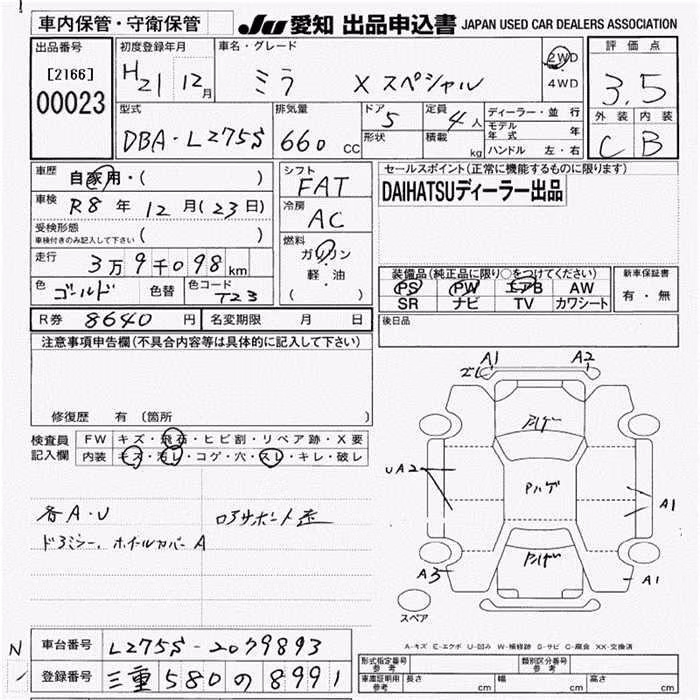 車内保管・守衛保管 JU 愛知 出品申込書 JAPAN USED CAR DEALERS ASSOCIATION
出品番号 初度登録年月 車名・グレード 2WD 評価点
[2166] H21 12月 ミラ Xスペシャル 4WD 3.5
00023 型式 排気量 ドア 5 定員 4人 ディーラー・並行 外装 内装
DBA-L275S 660 CC 形状 積載 kg モデル年式 年 C B
ハンドル 左・右
車歴 自家用・( ) シフト FAT セールスポイント(正常に機能するものに限ります)
車検 R8年 12月(23日) 冷房 AC DAIHATSUディーラー出品
受検形態 車検付きのみ記入して下さい ( )
走行 3万9千098km 燃料 ガソリン・軽・油 ( )
装備品(純正品に限り○をつけてください) 新車保証書
色 ゴールド 色替 色コード T23 PS PW エアB AW 有・無
SR ナビ TV カワシート
R券 8640円 名変期限 月 日 後日品
注意事項申告欄(不具合内容等は具体的に記入して下さい)
A1 A2
修復歴 有 〔箇所 〕
検査員記入欄 FW キズ・飛石・ヒビ割・リペア跡・X要
内装 キズ・汚レ・コゲ・穴・スレ・キレ・破レ
UA2 Pハゲ A1
各A・U
ドアミラー、ホイールカバーA
A3 A1
スペア
A-キズ E-エクボ U-凹み W-補修跡 S-サビ C-腐食 XX-交換済
N 車台番号 L275S-2079893 形式指定番号 参考 類別区分番号 参考
登録番号 三重580の8991 車庫証明用 参考 長さ cm 幅 cm 高さ cm